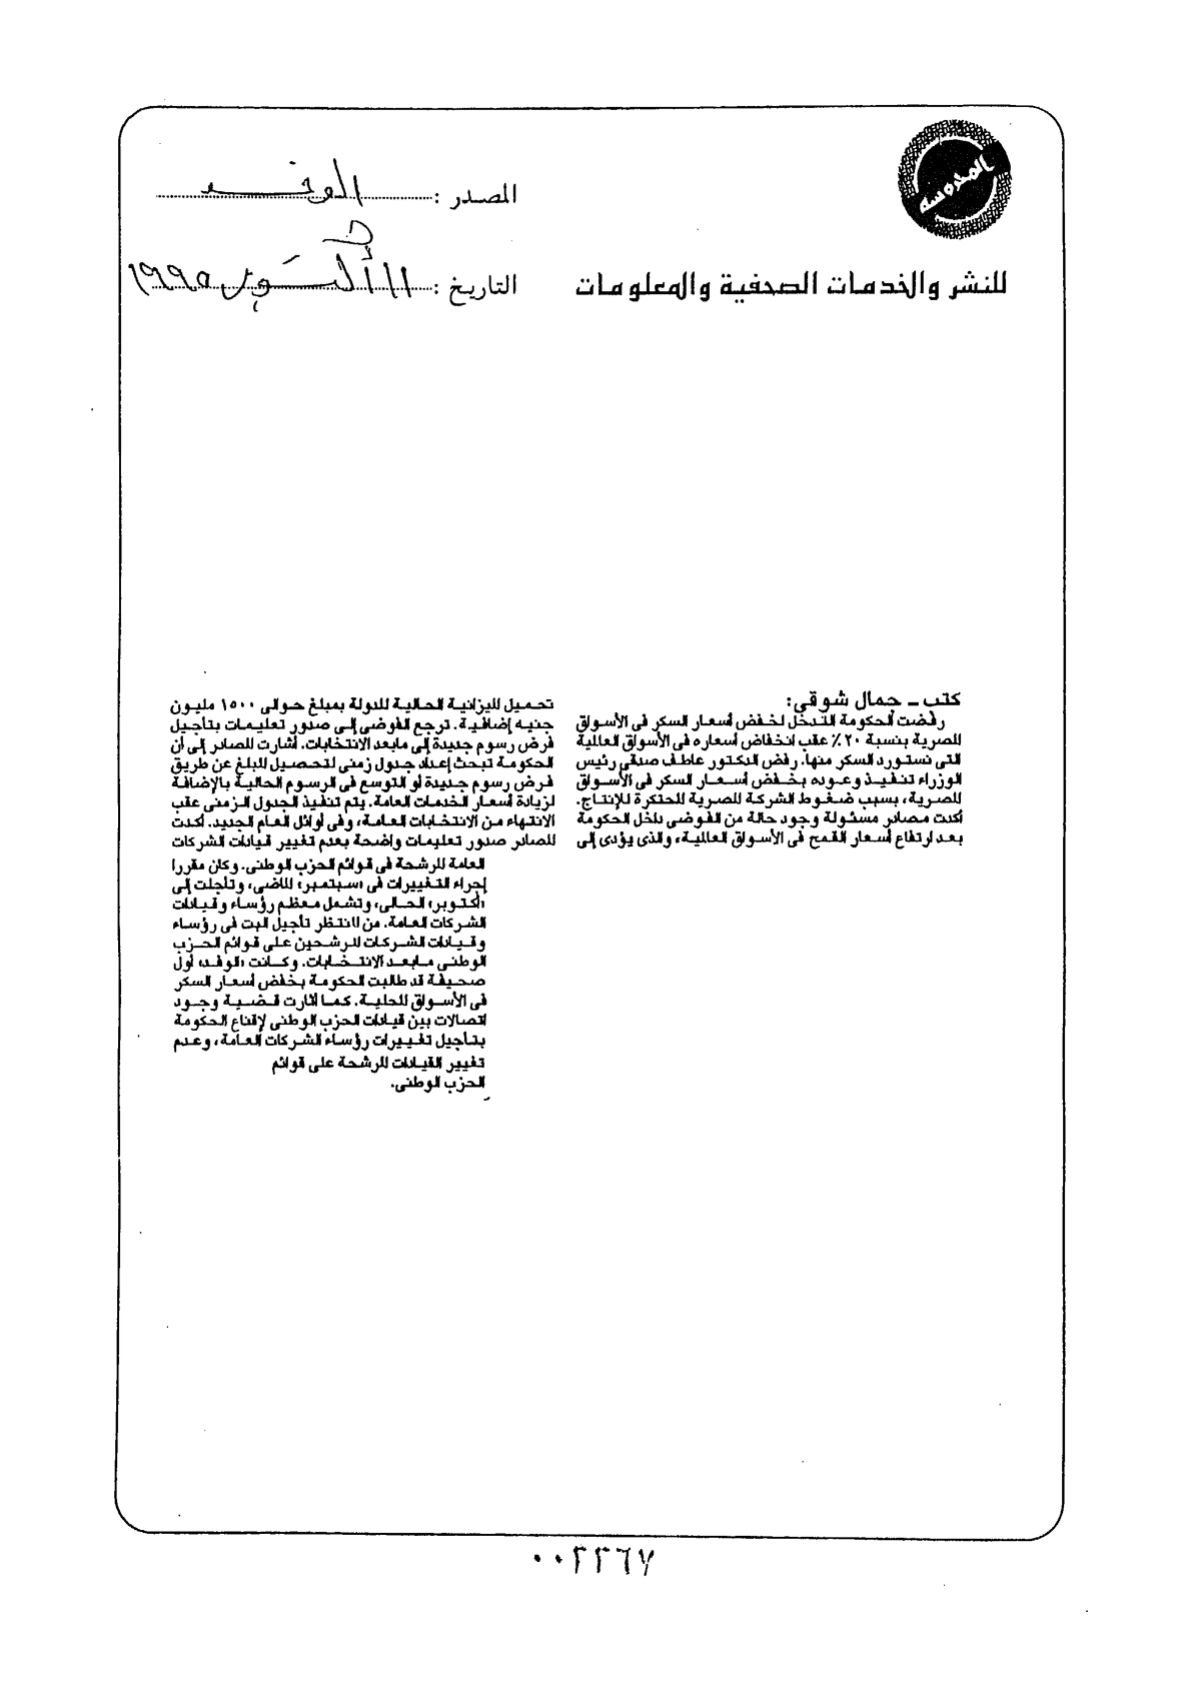 المحروسة
المصدر : الوفد
للنشر والخدمات الصحفية والمعلومات
التاريخ : ١١ أكتوبر ١٩٩٥
كتب ـ جمال شوقي:
رفضت الحكومة التدخل لخفض أسعار السكر فى الأسواق
المصرية بنسبة ٢٠٪ عقب انخفاض أسعاره فى الأسواق العالمية
التى نستورد السكر منها. رفض الدكتور عاطف صدقى رئيس
الوزراء تنفيذ وعوده بخفض أسعار السكر فى الأسواق
المصرية، بسبب ضغوط الشركة المصرية المحتكرة للإنتاج.
أكدت مصادر مسئولة وجود حالة من الفوضى داخل الحكومة
بعد ارتفاع أسعار القمح فى الأسواق العالمية، والذى يؤدى إلى
تحميل الميزانية الحالية للدولة بمبلغ حوالى ١٥٠٠ مليون
جنيه إضافية. ترجع الفوضى إلى صدور تعليمات بتأجيل
فرض رسوم جديدة إلى مابعد الانتخابات. أشارت المصادر إلى أن
الحكومة تبحث إعداد جدول زمنى لتحصيل المبلغ عن طريق
فرض رسوم جديدة أو التوسع فى الرسوم الحالية بالإضافة
لزيادة أسعار الخدمات العامة. يتم تنفيذ الجدول الزمنى عقب
الانتهاء من الانتخابات العامة، وفى أوائل العام الجديد. أكدت
المصادر صدور تعليمات واضحة بعدم تغيير قيادات الشركات
العامة المرشحة فى قوائم الحزب الوطنى. وكان مقررا
إجراء التغييرات فى «سبتمبر» الماضى، وتأجلت إلى
«أكتوبر» الحالى، وتشمل معظم رؤساء وقيادات
الشركات العامة. من المنتظر تأجيل البت فى رؤساء
وقيادات الشركات المرشحين على قوائم الحزب
الوطنى مابعد الانتخابات. وكانت «الوفد» أول
صحيفة قد طالبت الحكومة بخفض أسعار السكر
فى الأسواق المحلية. كما أثارت قضية وجود
اتصالات بين قيادات الحزب الوطنى لإقناع الحكومة
بتأجيل تغييرات رؤساء الشركات العامة، وعدم
تغيير القيادات المرشحة على قوائم
الحزب الوطنى.
٠٠٢٢٦٧